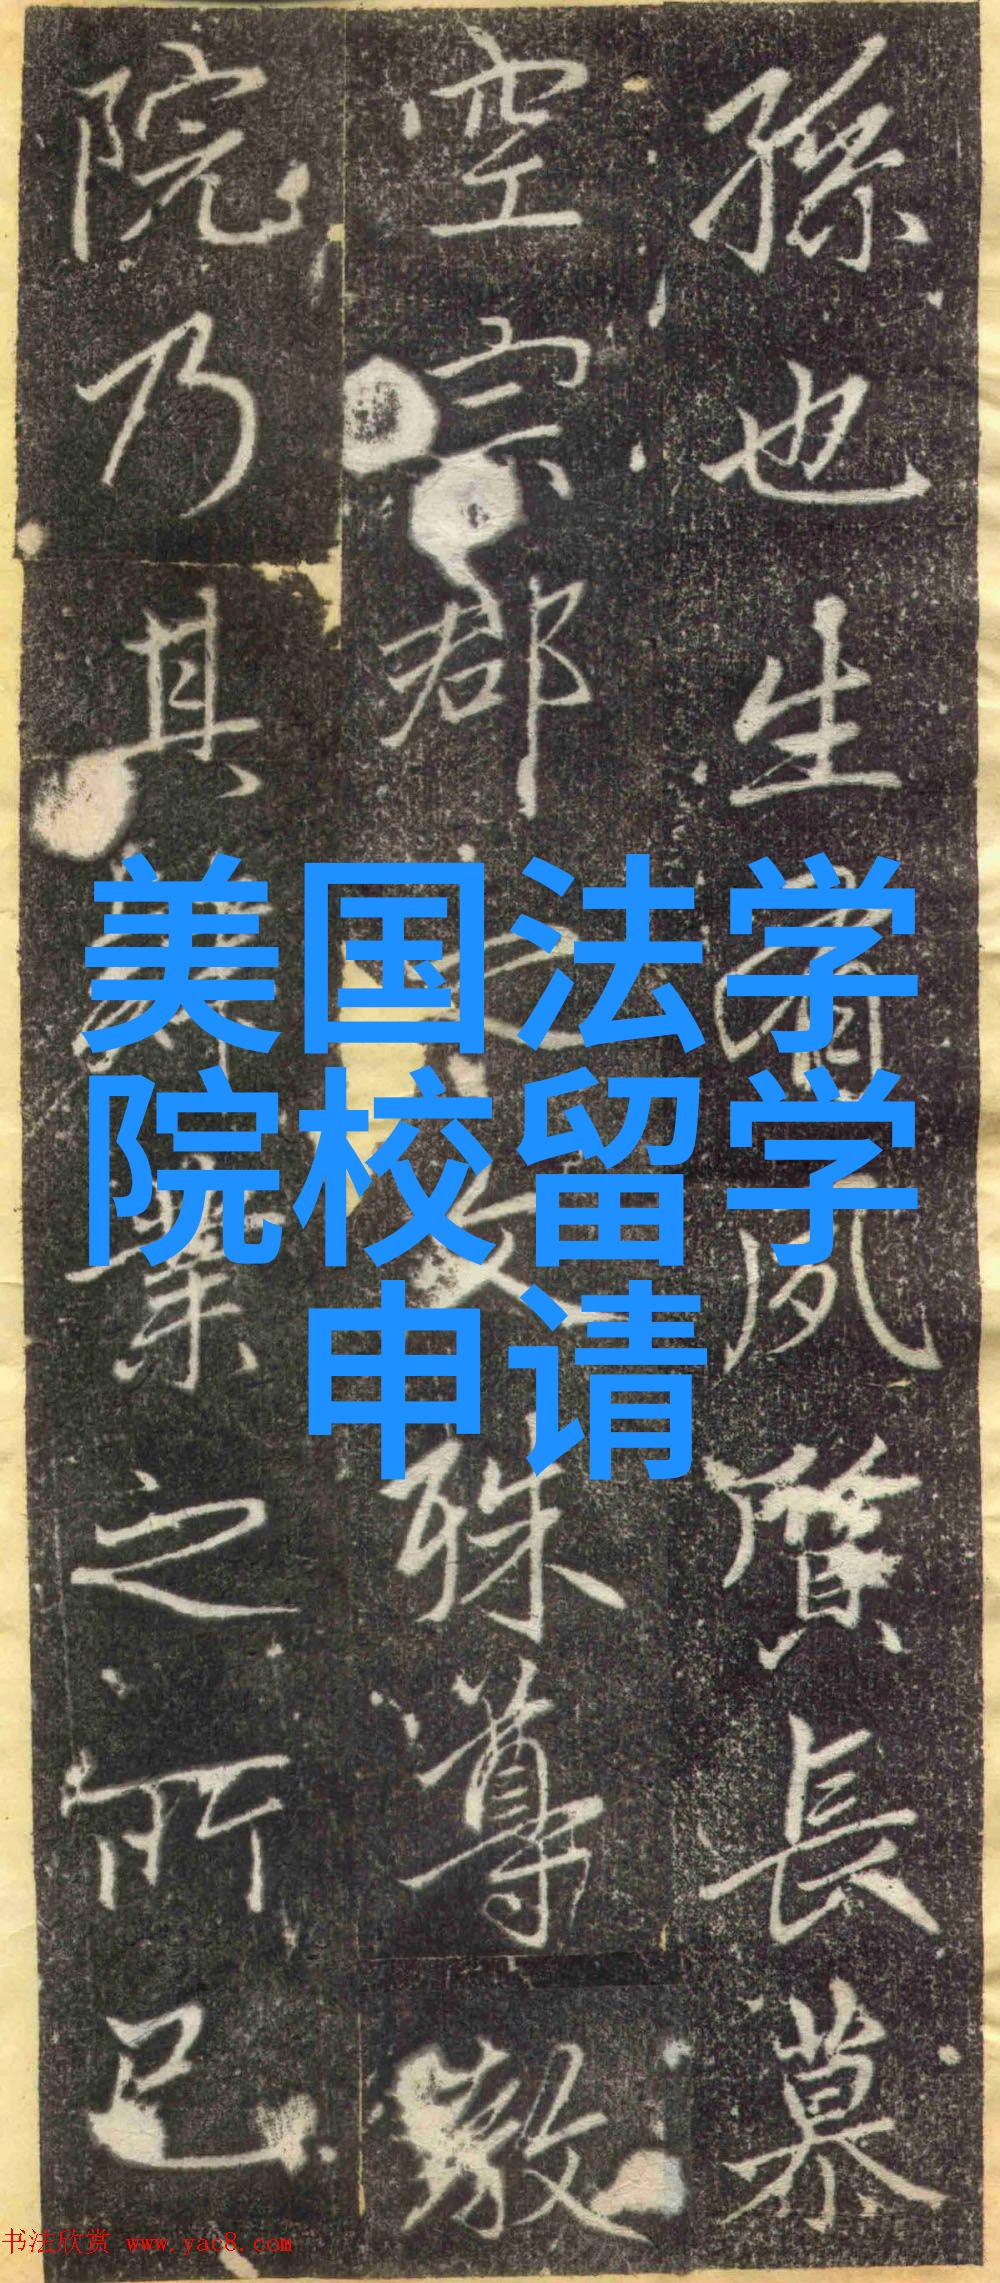 孫也生夙質長慕
空宗郡之文殊尊敷
院乃其業之所已
美国法学
院校留学
申请
书法欣赏 www.yac8.com